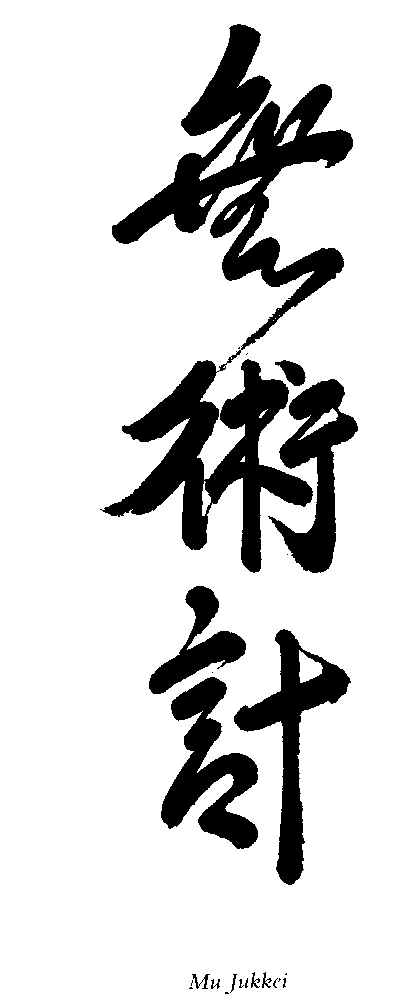 無術計
Mu Jukkei